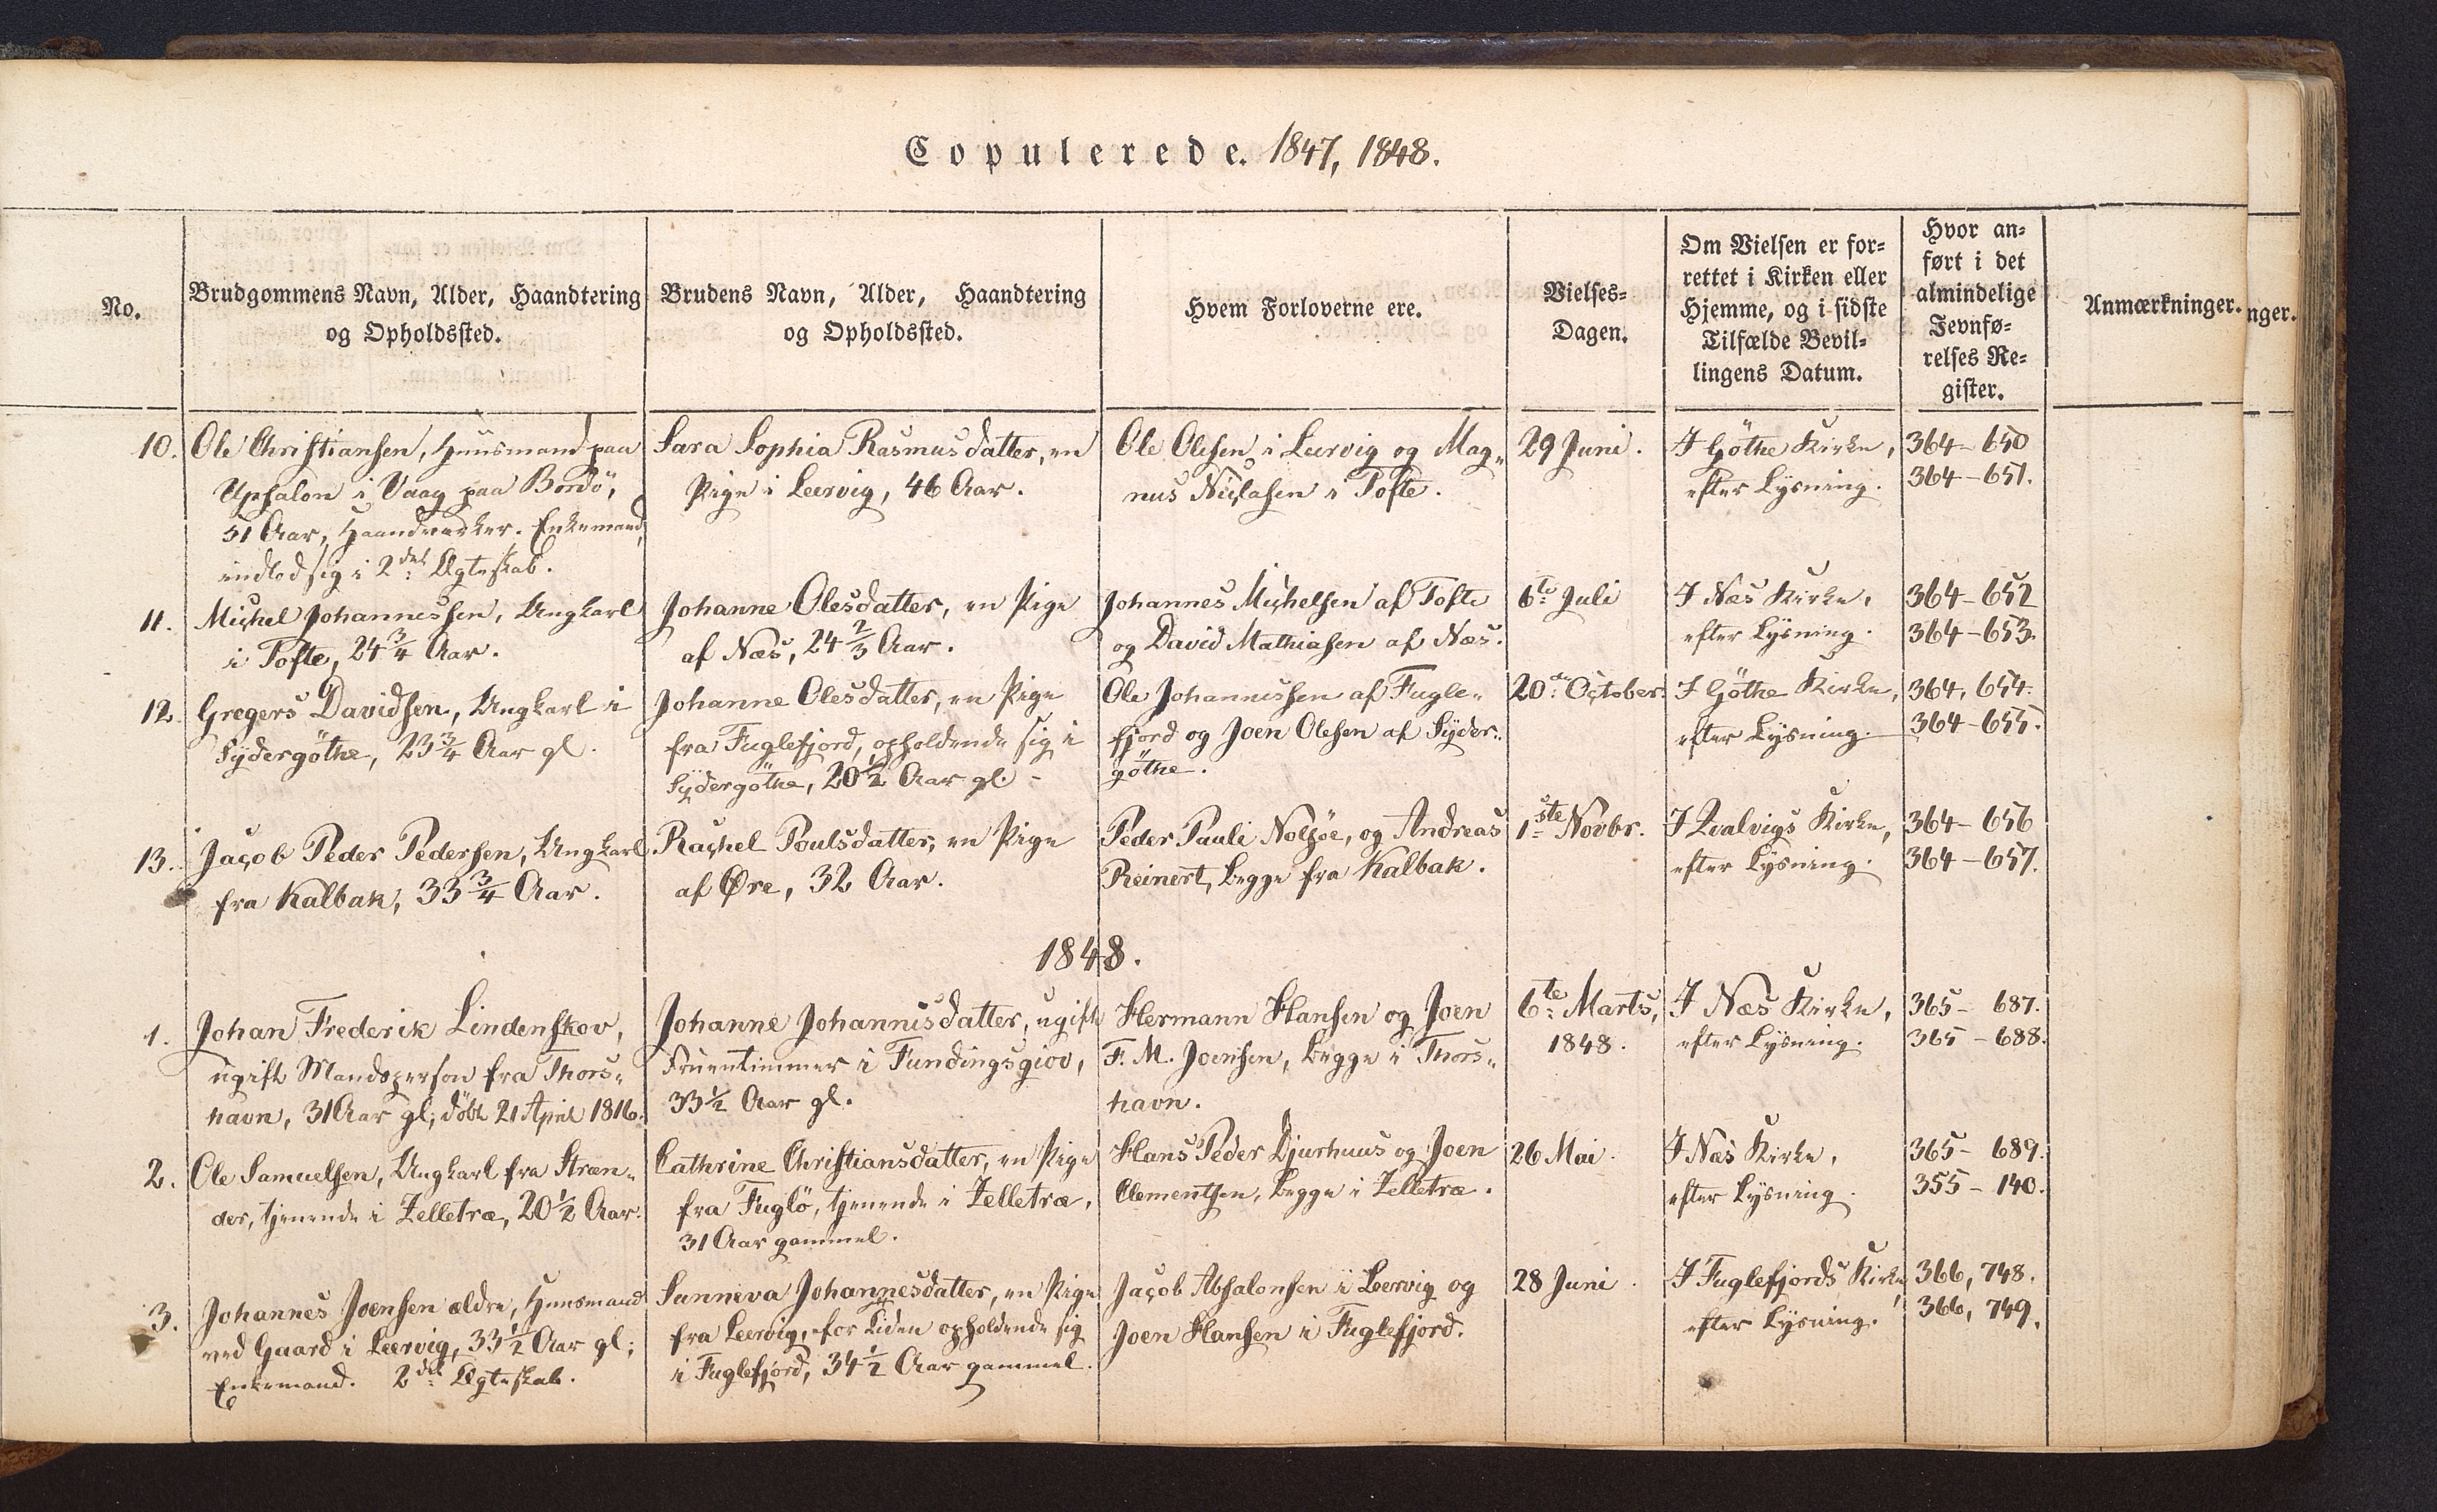 Copulerede. 1847, 1848.
No.
Brudgommens Navn, Alder, Haandtering
og Opholdssted.
Brudens Navn, Alder, Haandtering
og Opholdssted.
Hvem Forloverne ere.
Vielses-
Dagen.
Om Vielsen er for-
rettet i Kirken eller
Hjemme, og i sidste
Tilfælde Bevil-
lingens Datum.
Hvor an-
ført i det
almindelige
Jevnfø-
relses Re-
gister.
Anmærkninger.
nger.
10.
Ole Christiansen, Huusmand paa
Upsalon i Vaag paa Bordö,
51 Aar, Haandværker. Enkemand,
indlod sig i 2det Ægteskab.
Sara Sophia Rasmusdatter, en
Pige i Leervig, 46 Aar.
Ole Olesen i Leervig og Mag-
nus Niclasen i Tofte.
29 Juni.
I Göthe Kirke,
efter Lysning.
364-650
364-651.
11.
Michel Johannessen, Ungkarl
i Tofte, 24 3/4 Aar.
Johanne Olesdatter, en Pige
af Næs, 24 2/3 Aar.
Johannes Michelsen af Tofte
og David Mathiasen af Næs.
6te Juli
I Næs Kirke,
efter Lysning.
364-652
364-653.
12.
Gregers Davidsen, Ungkarl i
Sydergöthe, 23 3/4 Aar gl.
Johanne Olesdatter, en Pige
fra Fuglefjord, opholdende sig i
Sydergöthe, 20 1/2 Aar gl.
Ole Johannessen af Fugle-
fjord og Joen Olesen af Syder-
göthe.
20de October.
I Göthe Kirke,
efter Lysning.
364, 654.
364-655.
13.
Jacob Peder Pedersen, Ungkarl
fra Kalbak, 33 3/4 Aar.
Rachel Poulsdatter, en Pige
af Øre, 32 Aar.
Peder Pauli Nolsøe, og Andreas
Reinert, begge fra Kalbak.
1ste Novbr.
I Qvalvigs Kirke,
efter Lysning.
364-656
364-657.
1848.
1.
Johan Frederik Lindenskov,
ugift Mandsperson fra Thors-
havn, 31 Aar gl, döbt 21 April 1816.
Johanne Johannisdatter, ugift
Fruentimmer i Fundingsgiov,
33 1/2 Aar gl.
Hermann Hansen og Joen
F. M. Joensen, begge i Thors-
havn.
6te Marts,
1848.
I Næs Kirke,
efter Lysning.
365- 687.
365-688.
2.
Ole Samuelsen, Ungkarl fra Stræn-
der, tjenende i Zelletræ, 20 1/2 Aar.
Cathrine Christiansdatter, en Pige
fra Fuglö, tjenende i Zelletræ,
31 Aar gammel.
Hans Peder Djurhuus og Joen
Clementsen, begge i Zelletræ.
26 Mai.
I Næs Kirke,
efter Lysning.
365- 689.
355- 140.
3.
Johannes Joensen ældre, Huusmand
ved Gaard i Leervig, 33 1/2 Aar gl;
Enkemand. 2det Ægteskab.
Sunneva Johannesdatter, en Pige
fra Leervig, for Tiden opholdende sig
i Fuglefjord, 34 1/2 Aar gammel.
Jacob Absalonsen i Leervig og
Joen Hansen i Fuglefjord.
28 Juni.
I Fuglefjords Kirke,
efter Lysning.
366, 748.
366, 749.